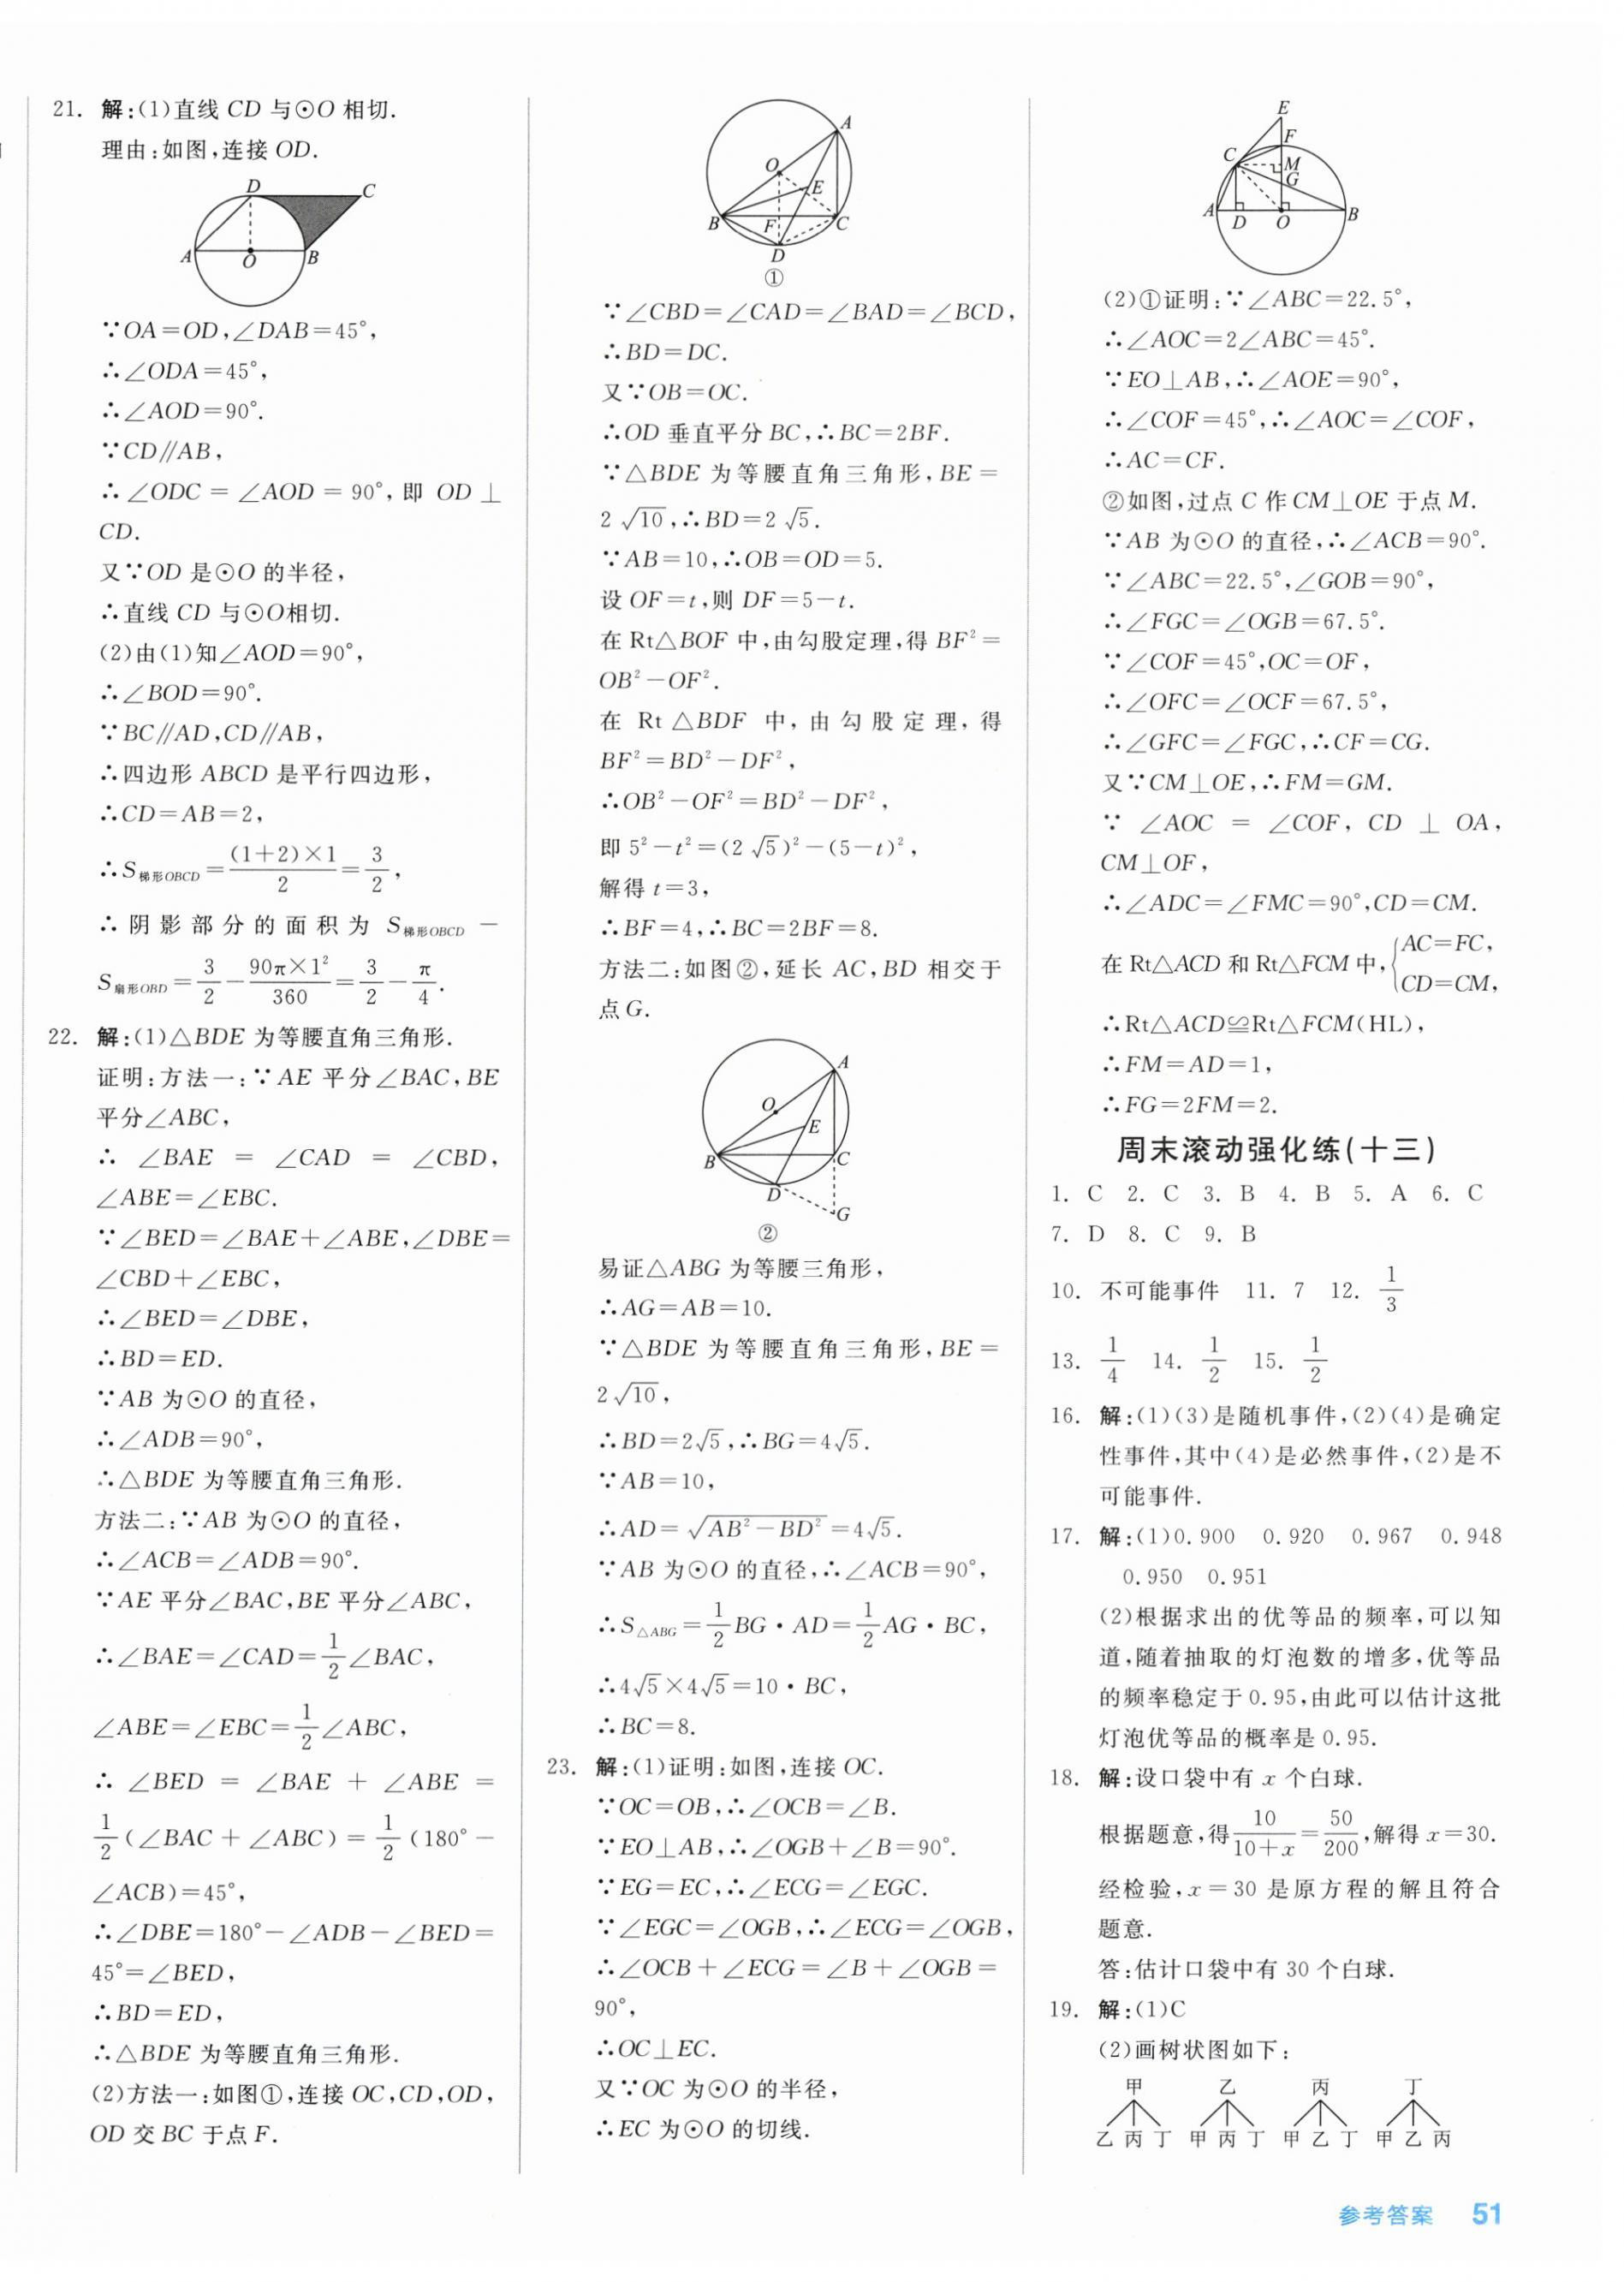 21. 解:(1)直线 CD 与⊙O 相切.
理由:如图,连接 OD.
D
C
A
O
B
∵OA=OD,∠DAB=45°,
∴∠ODA=45°,
∴∠AOD=90°.
∵CD∥AB,
∴∠ODC=∠AOD=90°,即 OD⊥
CD.
又∵OD 是⊙O 的半径,
∴直线 CD 与⊙O相切.
(2)由(1)知∠AOD=90°,
∴∠BOD=90°.
∵BC∥AD,CD∥AB,
∴四边形 ABCD 是平行四边形,
∴CD=AB=2,
∴S梯形OBCD=(1+2)×1/2=3/2,
∴阴影部分的面积为 S梯形OBCD-
S扇形OBD=3/2-90π×1²/360=3/2-π/4.
22. 解:(1)△BDE 为等腰直角三角形.
证明:方法一:∵AE 平分∠BAC,BE
平分∠ABC,
∴∠BAE=∠CAD=∠CBD,
∠ABE=∠EBC.
∵∠BED=∠BAE+∠ABE,∠DBE=
∠CBD+∠EBC,
∴∠BED=∠DBE,
∴BD=ED.
∵AB 为⊙O 的直径,
∴∠ADB=90°,
∴△BDE 为等腰直角三角形.
方法二:∵AB 为⊙O 的直径,
∴∠ACB=∠ADB=90°.
∵AE 平分∠BAC,BE 平分∠ABC,
∴∠BAE=∠CAD=1/2∠BAC,
∠ABE=∠EBC=1/2∠ABC,
∴∠BED=∠BAE+∠ABE=
1/2(∠BAC+∠ABC)=1/2(180°-
∠ACB)=45°,
∴∠DBE=180°-∠ADB-∠BED=
45°=∠BED,
∴BD=ED,
∴△BDE 为等腰直角三角形.
(2)方法一:如图①,连接 OC,CD,OD,
OD 交 BC 于点 F.
A
O
E
B
F
C
D
①
∵∠CBD=∠CAD=∠BAD=∠BCD,
∴BD=DC.
又∵OB=OC.
∴OD 垂直平分 BC,∴BC=2BF.
∵△BDE 为等腰直角三角形,BE=
2√10,∴BD=2√5.
∵AB=10,∴OB=OD=5.
设 OF=t,则 DF=5-t.
在 Rt△BOF 中,由勾股定理,得 BF²=
OB²-OF².
在 Rt△BDF 中,由勾股定理,得
BF²=BD²-DF²,
∴OB²-OF²=BD²-DF²,
即 5²-t²=(2√5)²-(5-t)²,
解得 t=3,
∴BF=4,∴BC=2BF=8.
方法二:如图②,延长 AC,BD 相交于
点 G.
A
O
E
B
C
D
G
②
易证△ABG 为等腰三角形,
∴AG=AB=10.
∵△BDE 为等腰直角三角形,BE=
2√10,
∴BD=2√5,∴BG=4√5.
∵AB=10,
∴AD=√(AB²-BD²)=4√5.
∵AB 为⊙O 的直径,∴∠ACB=90°,
∴S△ABG=1/2BG·AD=1/2AG·BC,
∴4√5×4√5=10·BC,
∴BC=8.
23. 解:(1)证明:如图,连接 OC.
∵OC=OB,∴∠OCB=∠B.
∵EO⊥AB,∴∠OGB+∠B=90°.
∵EG=EC,∴∠ECG=∠EGC.
∵∠EGC=∠OGB,∴∠ECG=∠OGB,
∴∠OCB+∠ECG=∠B+∠OGB=
90°,
∴OC⊥EC.
又∵OC 为⊙O 的半径,
∴EC 为⊙O 的切线.
E
F
C
M
G
A
D
O
B
(2)①证明:∵∠ABC=22.5°,
∴∠AOC=2∠ABC=45°.
∵EO⊥AB,∴∠AOE=90°,
∴∠COF=45°,∴∠AOC=∠COF,
∴AC=CF.
②如图,过点 C 作 CM⊥OE 于点 M.
∵AB 为⊙O 的直径,∴∠ACB=90°.
∵∠ABC=22.5°,∠GOB=90°,
∴∠FGC=∠OGB=67.5°.
∵∠COF=45°,OC=OF,
∴∠OFC=∠OCF=67.5°,
∴∠GFC=∠FGC,∴CF=CG.
又∵CM⊥OE,∴FM=GM.
∵∠AOC=∠COF,CD⊥OA,
CM⊥OF,
∴∠ADC=∠FMC=90°,CD=CM.
在 Rt△ACD 和 Rt△FCM 中,{AC=FC,
CD=CM,
∴Rt△ACD≌Rt△FCM(HL),
∴FM=AD=1,
∴FG=2FM=2.
周末滚动强化练(十三)
1. C 2. C 3. B 4. B 5. A 6. C
7. D 8. C 9. B
10. 不可能事件 11. 7 12. 1/3
13. 1/4 14. 1/2 15. 1/2
16. 解:(1)(3)是随机事件,(2)(4)是确定
性事件,其中(4)是必然事件,(2)是不
可能事件.
17. 解:(1)0.900 0.920 0.967 0.948
0.950 0.951
(2)根据求出的优等品的频率,可以知
道,随着抽取的灯泡数的增多,优等品
的频率稳定于0.95,由此可以估计这批
灯泡优等品的概率是0.95.
18. 解:设口袋中有 x 个白球.
根据题意,得10/(10+x)=50/200,解得 x=30.
经检验,x=30 是原方程的解且符合
题意.
答:估计口袋中有 30 个白球.
19. 解:(1)C
(2)画树状图如下:
甲 乙 丙 丁
乙 丙 丁 甲 丙 丁 甲 乙 丁 甲 乙 丙
参考答案 51